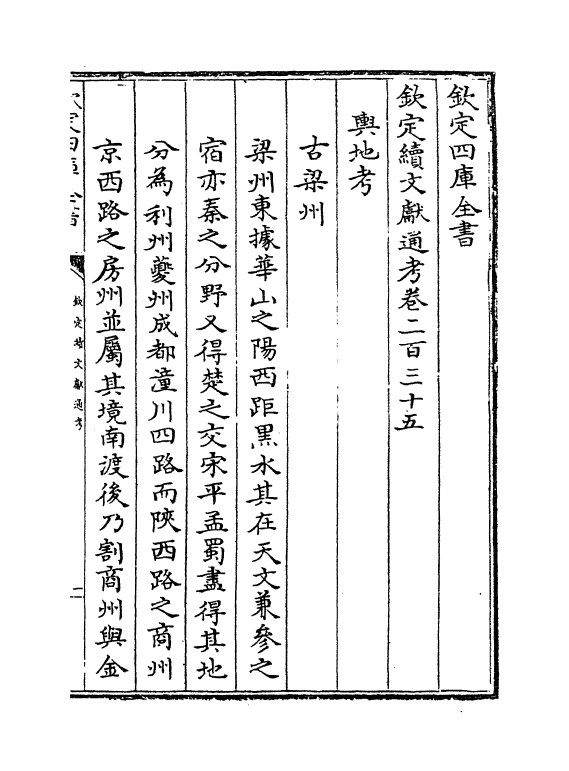 欽定四庫全書
欽定續文獻通考卷二百三十五
輿地考
古梁州
梁州東據華山之陽西距黑水其在天文兼參之
宿亦秦之分野又得楚之交宋平孟蜀盡得其地
分為利州夔州成都潼川四路而陝西路之商州
京西路之房州並屬其境南渡後乃割商州與金
欽定四庫全書
欽定續文獻通考
一